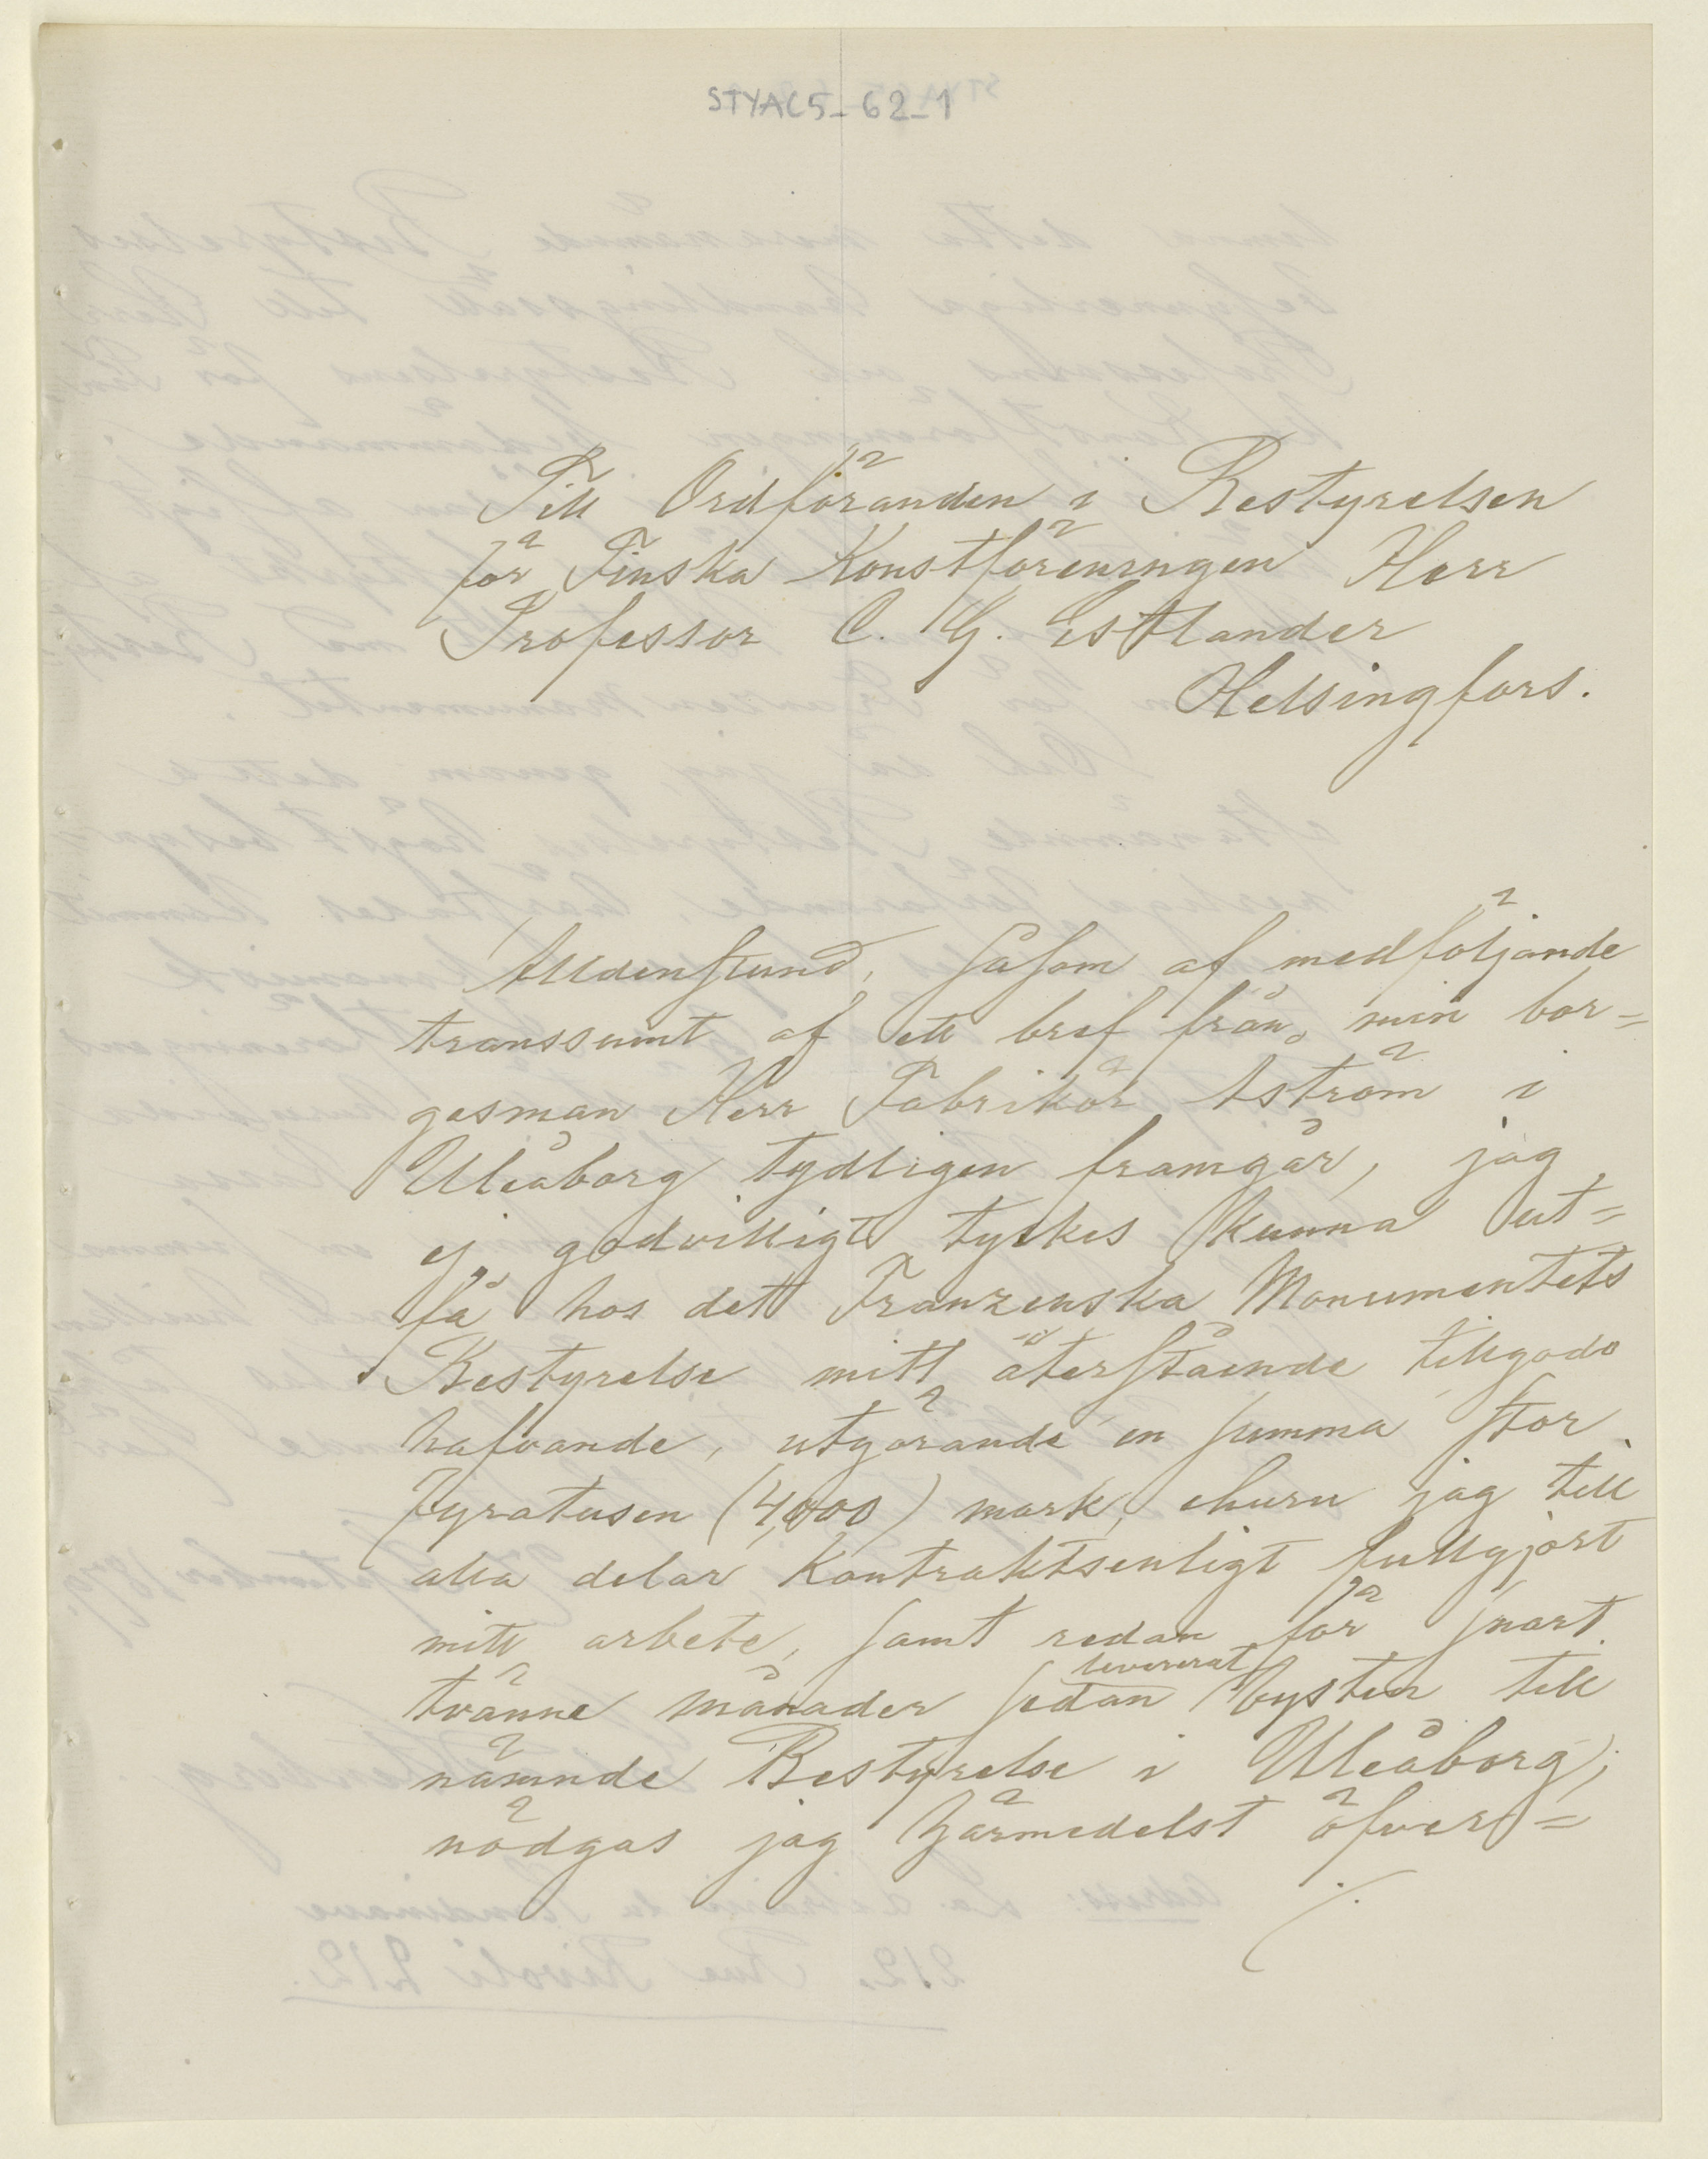 STYAC5_62_1
Till Ordföranden i Bestyrelsen
för Finska Konstföreningen Herr
Professor C. G. Estlander
Helsingfors.
Alldenstund, såsom af medföljande
transsumt af ett bref från min bor=
gesman Herr Fabrikör Åström i
Uleåborg tydligen framgår, jag
ej godvilligt tyckes kunna ut=
få hos dett Franzenska Monumentets
Bestyrelse mitt återstående tillgodo
hafvande, utgörande en summa stor
fyratusen (4,000) mark, ehuru jag till
alla delar kontraktsenligt fullgjort
mitt arbete, samt redan för snart
tvänne månader sedan levererat bysten till
nämnde Bestyrelse i Uleåborg;
nödgas jag härmedelst öfver=
./.